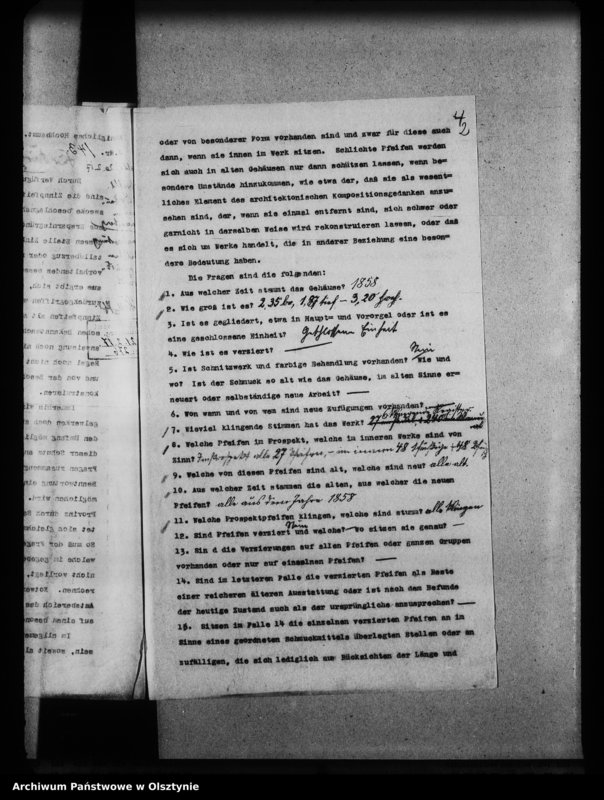 42
oder von besonderer Form vorhanden sind und zwar für diese auch
dann, wenn sie innen im Werk sitzen. Schlichte Pfeifen werden
sich auch in alten Gehäusen nur dann schützen lassen, wenn be=
sondere Umstände hinzukommen, wie etwa der, daß sie als wesent=
liches Element des architektonischen Kompositionsgedanken anzu=
sehen sind, der, wenn sie einmal entfernt sind, sich schwer oder
garnicht in derselben Weise wird rekonstruieren lassen, oder daß
es sich um Werke handelt, die in anderer Beziehung eine beson=
dere Bedeutung haben.
Die Fragen sind die folgenden:
1. Aus welcher Zeit stammt das Gehäuse? 1858
2. Wie groß ist es? 2,35 br, 1,87 tief – 3,20 hoch.
3. Ist es gegliedert, etwa in Haupt= und Vororgel oder ist es
eine geschlossene Einheit? Geschlossene Einheit
4. Wie ist es versiert? —
5. Ist Schnitzwerk und farbige Behandlung vorhanden? Nein Wie und
wo? Ist der Schmuck so alt wie das Gehäuse, im alten Sinne er=
neuert oder selbständige neue Arbeit? —
6. Von wann und von wem sind neue Zufügungen vorhanden? —
7. Wieviel klingende Stimmen hat das Werk?
8. Welche Pfeifen im Prospekt, welche in inneren Werke sind von
Zinn? Im Prospekt alle 27 Pfeifen, – im innern 48
9. Welche von diesen Pfeifen sind alt, welche sind neu? alle alt.
10. Aus welcher Zeit stammen die alten, aus welcher die neuen
Pfeifen? alle aus dem Jahre 1858
11. Welche Prospektpfeifen klingen, welche sind stumm? alle klingen
12. Sind Pfeifen versiert Nein und welche? Wo sitzen sie genau? —
13. Sin d die Versierungen auf allen Pfeifen oder ganzen Gruppen
vorhanden oder nur auf einzelnen Pfeifen? —
14. Sind im letzteren Falle die versierten Pfeifen als Reste
einer reicheren älteren Ausstattung oder ist nach dem Befunde
der heutige Zustand auch als der ursprüngliche anzusprechen? —
15. Sitzen im Falle 14 die einzelnen versierten Pfeifen an im
Sinne eines geordneten Schmuckmittels überlegten Stellen oder an
zufälligen, die sich lediglich aus Rücksichten der Länge und
Archiwum Państwowe w Olsztynie